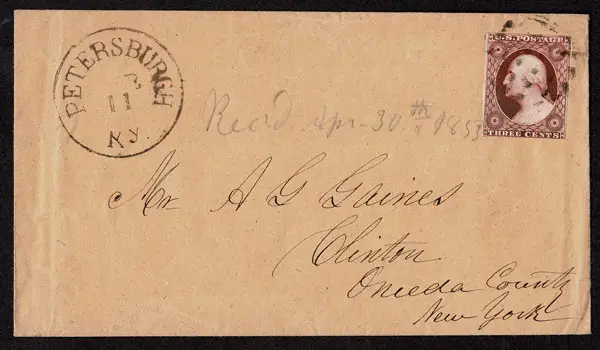 PETERSBURGH
11
KY.
U.S. POSTAGE
THREE CENTS
Rec'd Apr- 30th 1853
Mr A G Gaines
Clinton
Oneida County
New York